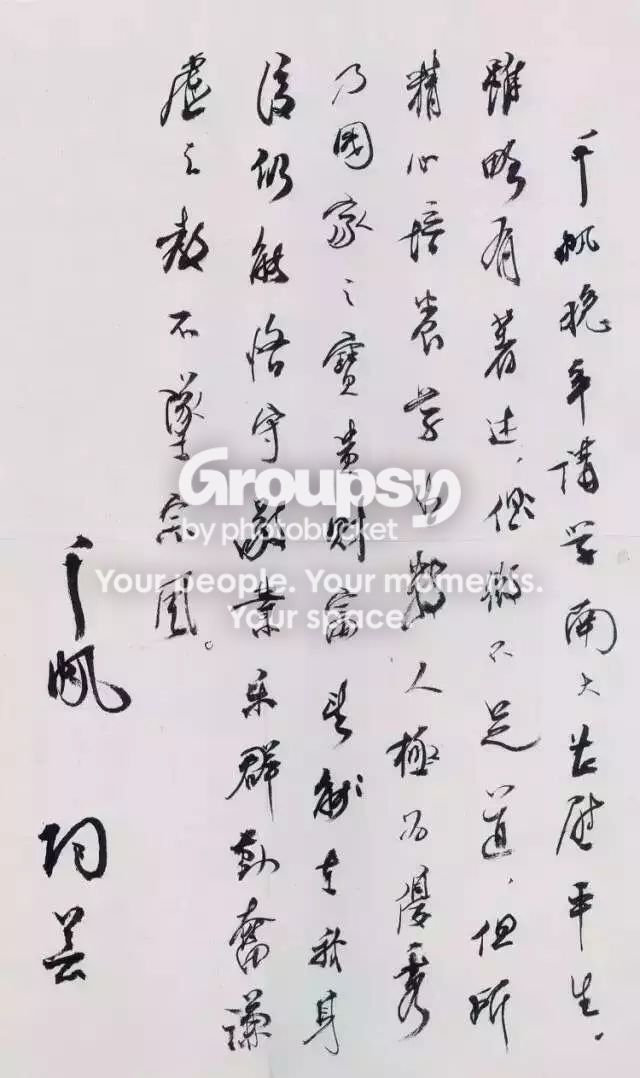 千帆晚年講学南大甚慰平生，
雖略有著述，俱微不足道，但所
精心培養学生數人極为優秀
乃國家之寶貴財富望能在我身
後仍能恪守敬業樂群勤奮謙
虛之教不墜宗風。
千帆
陶芸
Groupsy
by photobucket
Your people. Your moments.
Your space.